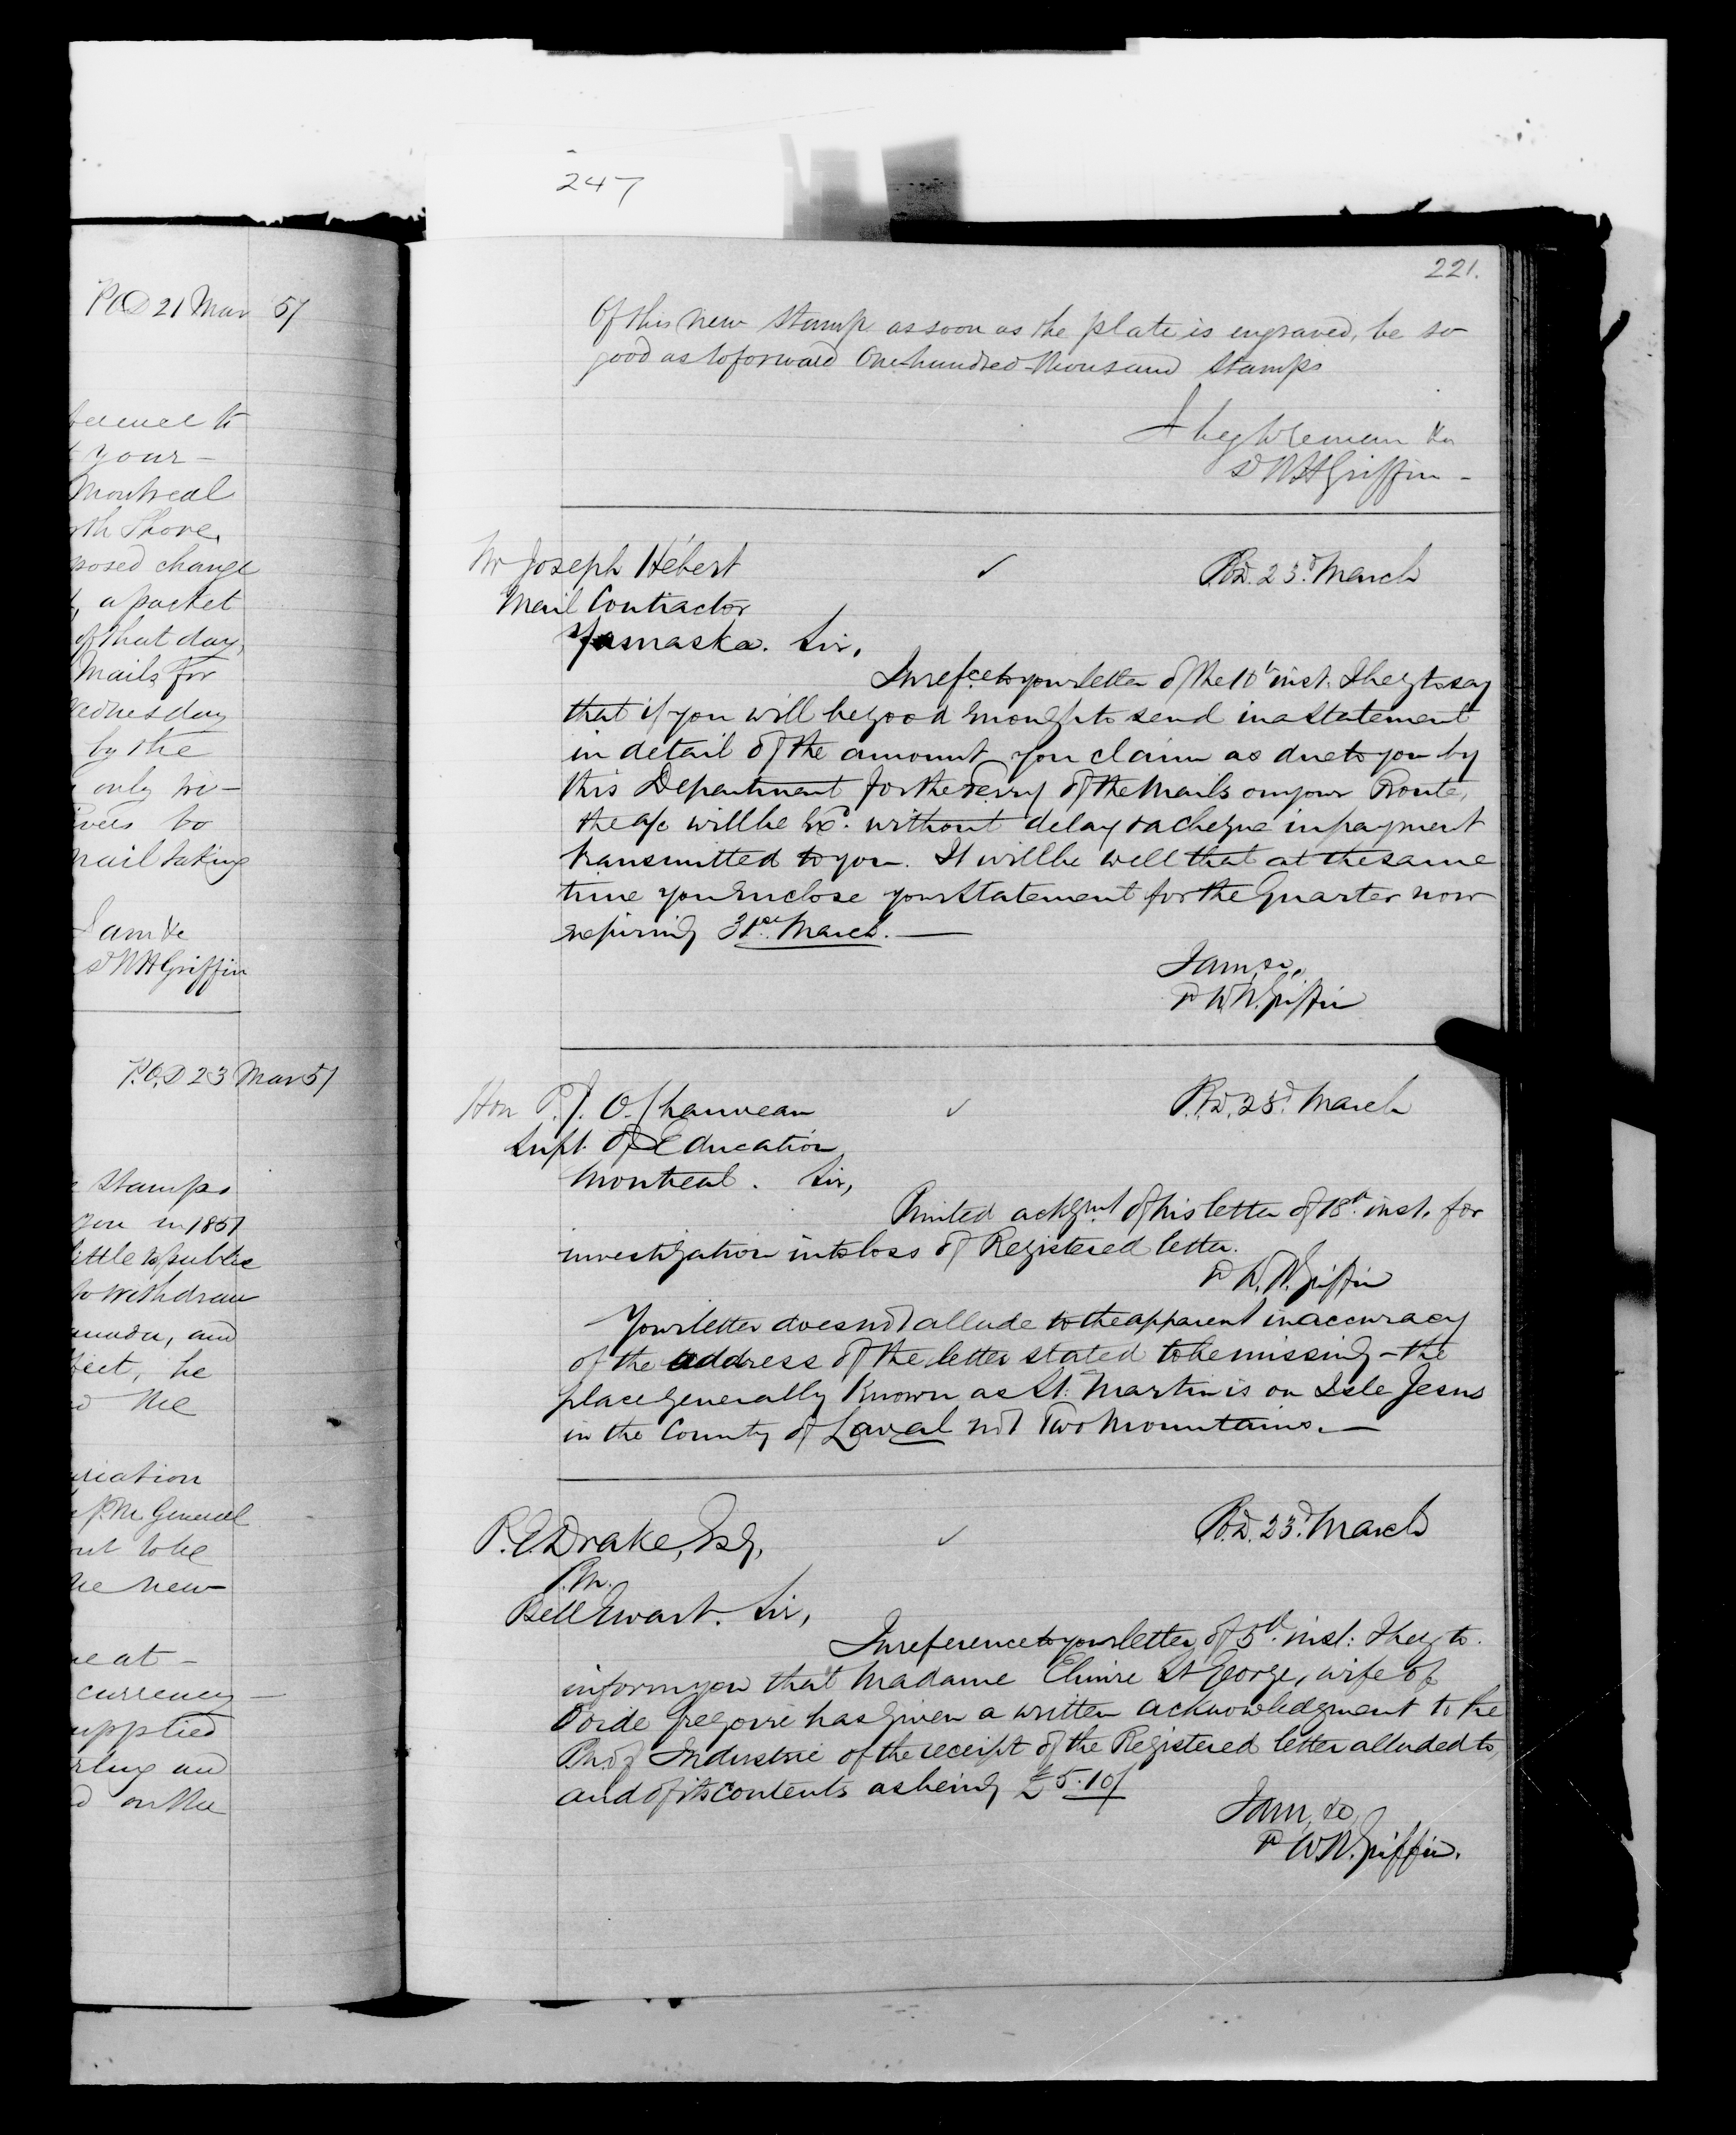 247
P.O.D 21 Mar 57
your
Montreal
th Shore,
posed change
, a packet
of that day,
Mails for
ednesday
by the
only tri-
to
mail taking
I am &c
W H Griffin
P.O.D 23 Mar 57
stamps
you in 1851
ittle to public
to withdraw
anada, and
ject, he
the
ariation
P.M. General
out to be
he new
e at -
currency -
upplied
rling and
d on the
221.
Of this new stamp as soon as the plate is engraved, be so
good as to forward One-hundred-thousand stamps
I beg to remain &c
W H Griffin -
Mr Joseph Hébert ✓ P.O.D. 23d March
Mail Contractor
Yamaska. Sir,
In refce to your letter of the 10th inst. I beg to say
that if you will be good enough to send in a statement
in detail of the amount you claim as due to you by
this Department for the Ferry of the Mails on your Route,
the a/c will be Exd. without delay & a cheque in payment
transmitted to you. It will be well that at the same
time you enclose your statement for the Quarter now
expiring 31st March. —
I am, &c,
W. H. Griffin
Hon P. J. O. Chauveau ✓ P.O.D. 23d March
Supt. of Education
Montreal. Sir,
Printed ackgmt of his letter of 18th inst. for
investigation into loss of Registered letter.
W. H. Griffin
Your letter does not allude to the apparent inaccuracy
of the address of the letter stated to be missing - the
place generally known as St. Martin is on Isle Jesus
in the County of Laval not Two Mountains. —
P. E. Drake, Esq, ✓ P.O.D. 23d March
P.M.
Bell Ewart. Sir,
In reference to your letter of 5th inst: I beg to
inform you that Madame Elmire St George, wife of
Gregoire has given a written acknowledgment to the
P.M. of Industrie of the receipt of the Registered letter alluded to
and of its contents as being £5.10/
I am, &c,
W. H. Griffin.